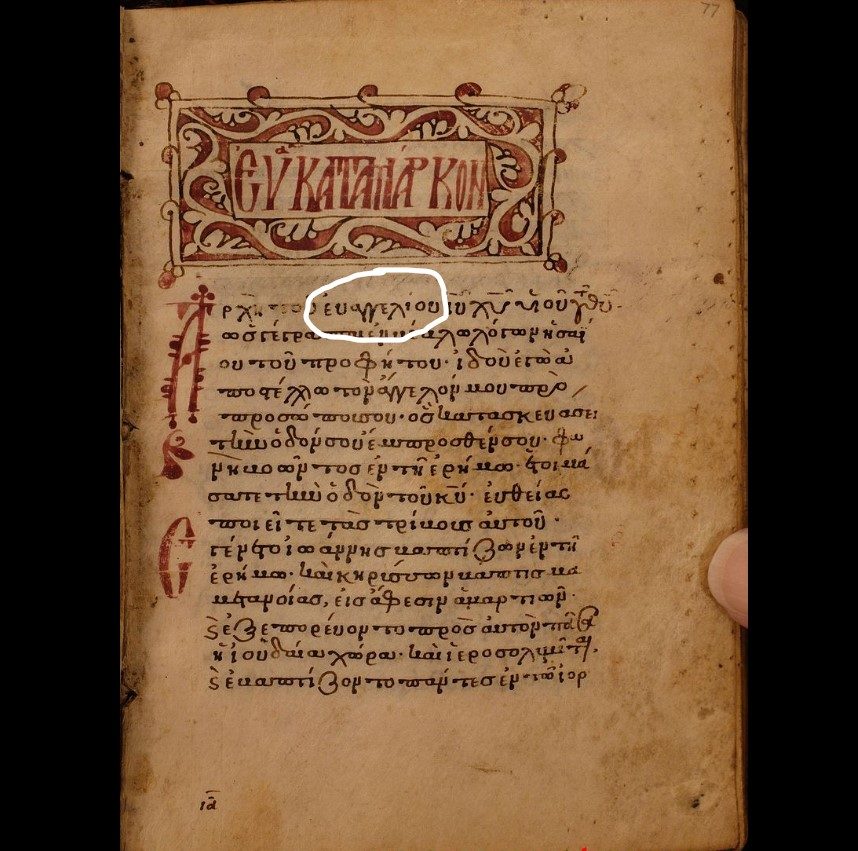 77
ΕΥ ΚΑΤΑ ΜΑΡΚΟΝ
Ἀρχὴ τοῦ εὐαγγελίου ἰῦ χῦ υἱοῦ τοῦ θῦ·
ὡς γέγραπται ἐν ἡσαΐ
ου τοῦ προφήτου· ἰδοὺ ἐγὼ ἀ
ποστέλλω τὸν ἄγγελόν μου πρὸ
προσώπου σου· ὃς κατασκευάσει
τὴν ὁδόν σου ἔμπροσθέν σου· φω
νὴ βοῶντος ἐν τῆ ἐρήμω· ἑτοιμά
σατε τὴν ὁδὸν τοῦ κῦ· εὐθείας
ποιεῖτε τὰς τρίβους αὐτοῦ·
Ἐγένετο ἰωάννης βαπτίζων ἐν τῆ
ἐρήμω· καὶ κηρίσσων βάπτισμα
μετανοίας, εἰς ἄφεσιν ἁμαρτιῶν·
καὶ ἐξεπορεύοντο πρὸς αὐτὸν πᾶσα
ἡ ἰουδαία χώρα· καὶ ἱεροσολυμῖται·
καὶ ἐβαπτίζοντο πάντες ἐν τῶ ἰορ
ια